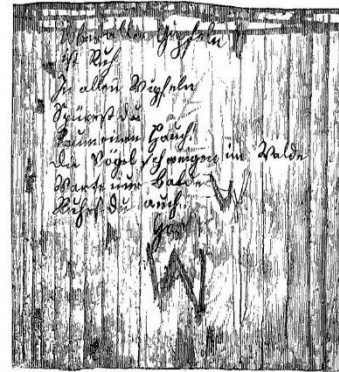 Über allen Gipfeln
ist Ruh
In allen Wipfeln
Spürest du
Kaum einen Hauch.
Die Vögel schweigen im Walde
Warte nur Balde
Ruhest du auch.
W
W